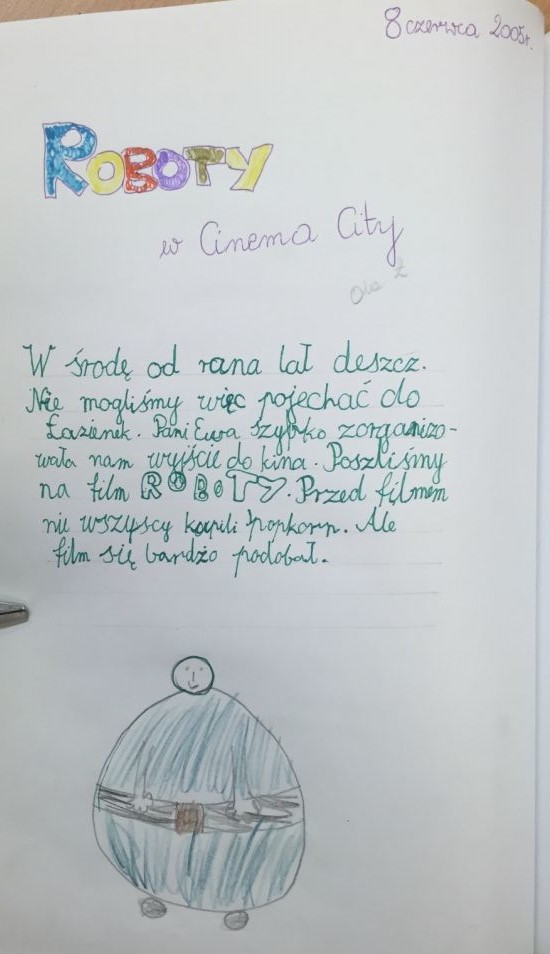 8 czerwca 2005r.
ROBOTY
w Cinema City
Ola Ł
W środę od rana lał deszcz.
Nie mogliśmy więc pojechać do
Łazienek. Pani Ewa szybko zorganizo-
wała nam wyjście do kina. Poszliśmy
na film ROBOTY. Przed filmem
nie wszyscy kupili popkorn. Ale
film się bardzo podobał.